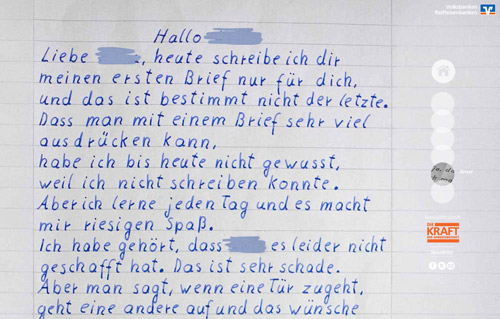 Volksbanken
Raiffeisenbanken
Hallo
Liebe , heute schreibe ich dir
meinen ersten Brief nur für dich,
und das ist bestimmt nicht der letzte.
Dass man mit einem Brief sehr viel
ausdrücken kann,
habe ich bis heute nicht gewusst,
weil ich nicht schreiben konnte.
Aber ich lerne jeden Tag und es macht
mir riesigen Spaß.
Ich habe gehört, dass es leider nicht
geschafft hat. Das ist sehr schade.
Aber man sagt, wenn eine Tür zugeht,
geht eine andere auf und das wünsche
KRAFT